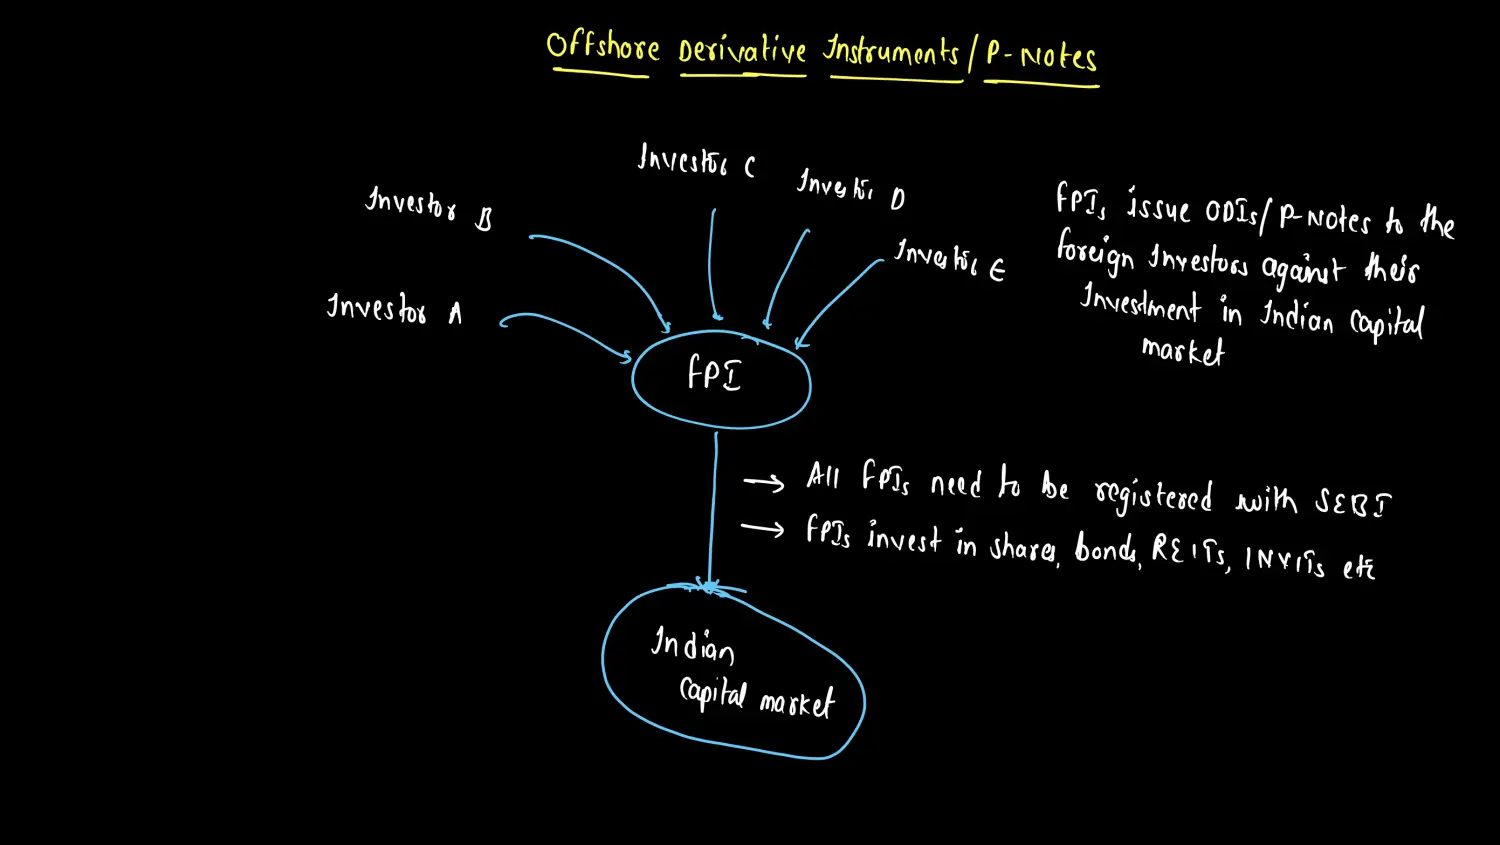 Offshore Derivative Instruments/P-Notes
Investor C
Investor D
Investor B
Investor E
Investor A
FPI
FPIs issue ODIs/P-Notes to the
foreign Investors against their
Investment in Indian Capital
market
→ All FPIs need to be registered with SEBI
→ FPIs invest in shares, bonds, REITs, INVITs etc
Indian
Capital market